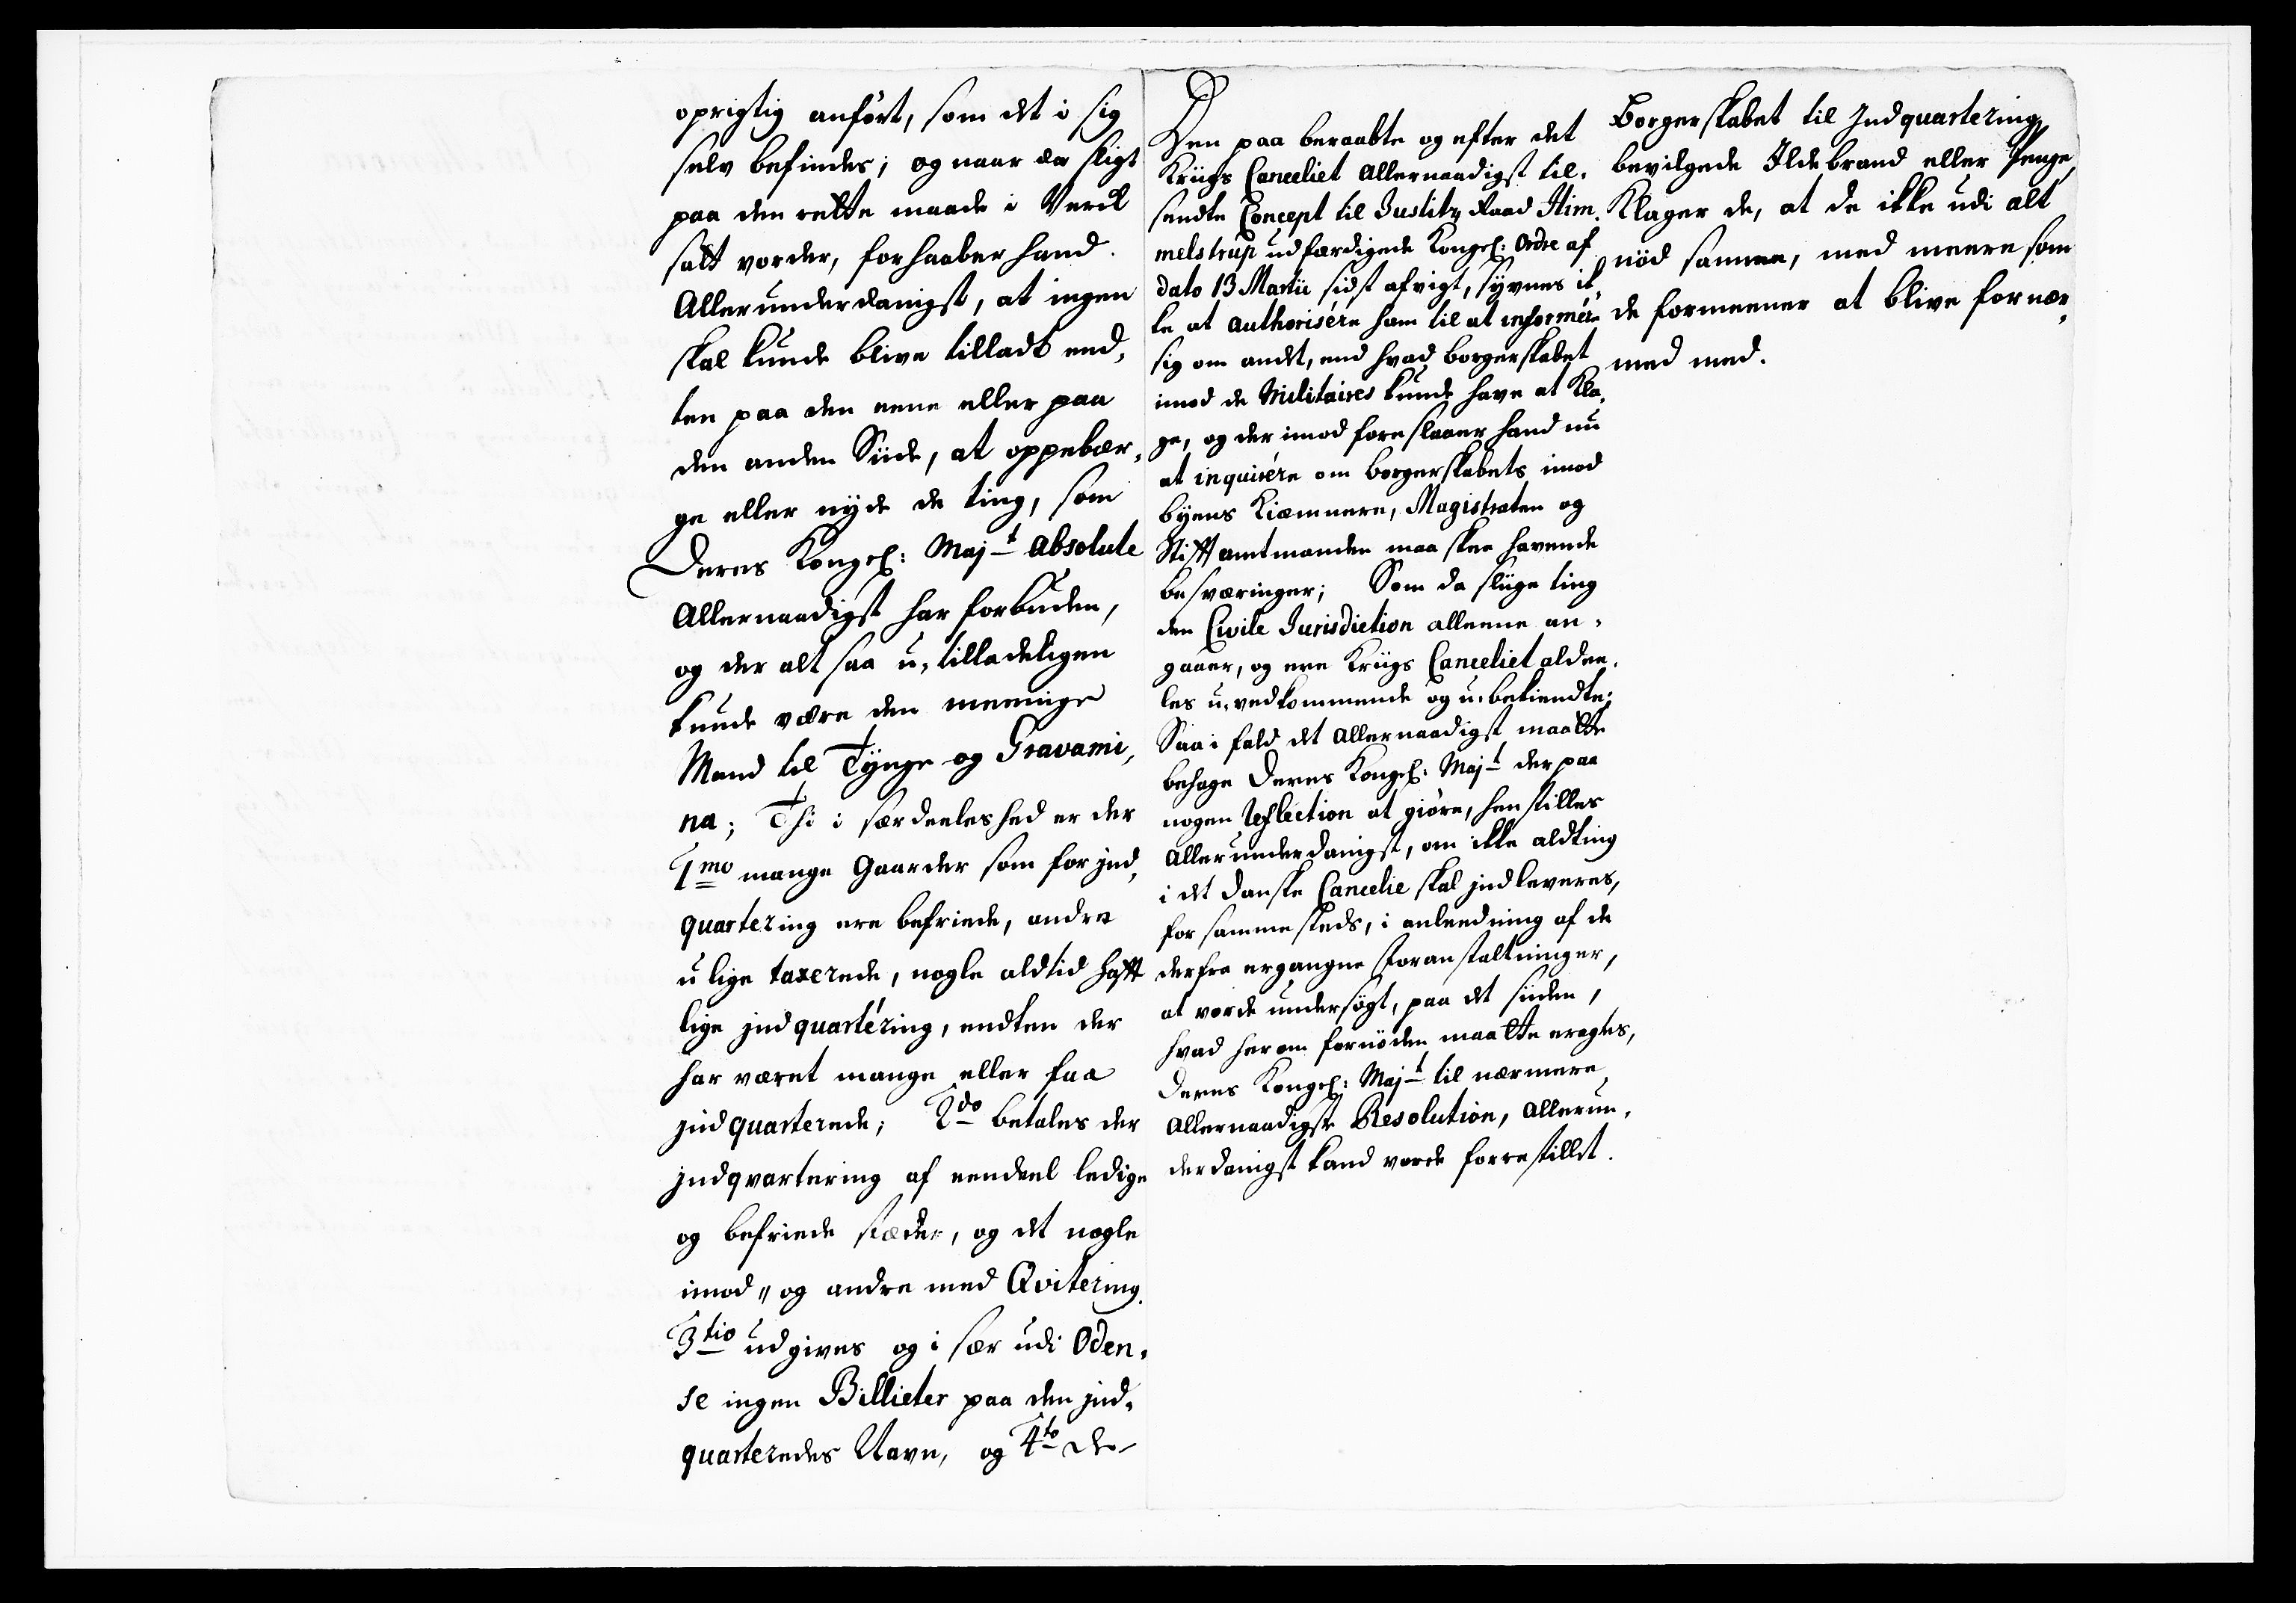 oprigtig anført, som det i sig
selv befindes; og naar da sligt
paa den rette maade i Verck
satt vorder, forhaaber hand
Allerunderdanigst, at ingen
skal kunde blive tilladt end,
ten paa den eene eller paa
den anden Siide, at oppebær,
ge eller nyde de ting, som
Deres Kongel: Maj:t absolute
Allernaadigst har forbuden,
og der alt saa u,tilladeligen
kunde være den meenige
Mand til Tynge og Gravami,
na; Thi i særdeeleshed er der
1mo mange Gaarder som for jnd,
quartering ere befriede, andre
ulige taxerede, nogle aldtid hafft
lige jndquartéring, endten der
har været mange eller faa
jndquarterede; 2do betales der
jndqvartering af eendeel ledige
og befriede stæder, og det nogle
imod " og andre med Qvitering.
3tio udgives og i sær udi Oden,
se ingen Billieter paa den jnd,
quarteredes Navn, og 4to de
Den paa beraabte og efter det
Kriigs Canceliet allernaadigst til,
sendte Concept til Justitz Raad Him,
melstrup udfærdigede Kongel: Ordre af
dato 13 Martii sidst afvigt, synes ik,
ke at authorisére ham til at informére
sig om andet, end hvad borgerskabet
imod de Militaires kunde have at Kla,
ge, og der imod foreslaaer hand nu
at inquirére om borgerskabets imod
byens Kiæmnere, Magistraten og
Stifftamtmanden maa skee havende
besværinger; Som da sliige ting
den Civile Jurisdiction alleene an,
gaaer, og ere Kriigs Canceliet aldee,
les u,vedkommende og u,bekiendte;
Saa i fald det allernaadigst maatte
behage Deres Kongel: Maj:t der paa
nogen Reflection at giøre, henstilles
allerunderdanigst, om ikke aldting
i det danske Cancelie skal jndleveres,
for sammesteds, i anleedning af de
derfra ergangne foranstaltninger,
at vorde undersøgt, paa det siiden,
hvad herom fornøden maatte eragtes,
Deres Kongel: Maj:t til nærmere,
allernaadigste Resolution, allerun,
derdanigst kand vorde forrestillet.
Borgerskabet til Jndquartering
bevilgede Jldebrand eller Penge,
Klager de, at de ikke udi alt
nød samme, med meere som
de formeener at blive fornær,
med med.